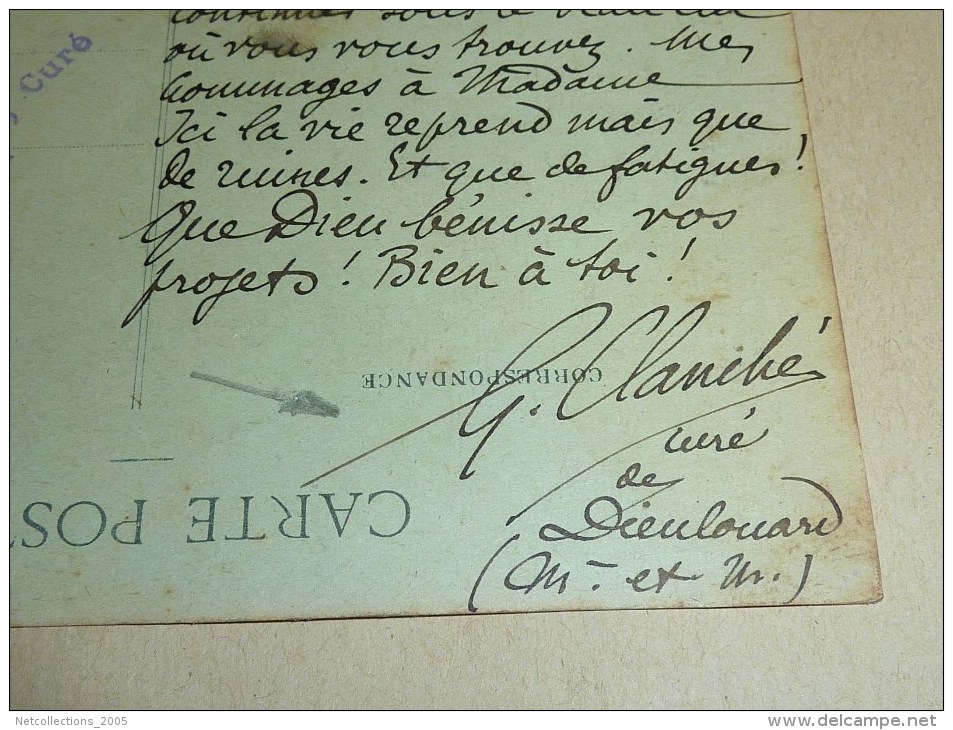 où vous vous trouvez. Mes
hommages à Madame
Ici la vie reprend mais que
de ruines. Et que de fatigues!
Que Dieu bénisse vos
projets! Bien à toi!
G. Clanché
curé
de
Dieulouard
(M. et M.)
Curé
CORRESPONDANCE
CARTE POS
Netcollections_2005
www.delcampe.net